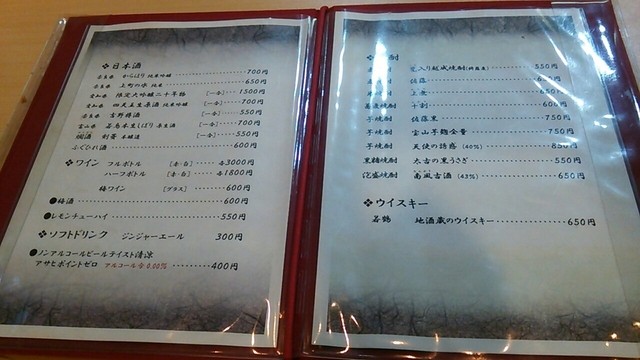 ❖日本酒
からはり 純米吟醸 ………… 700円
上町の水 純米 ………… 650円
限定大吟醸二十年勝 [一合] … 1500円
四天王生原酒 純米吟醸 [一合] … 700円
吉野錦酒 [一合] … 550円
[一合] … 700円
剣菱 本醸造 [一合] … 550円
ふぐひれ酒 ………… 600円
❖ワイン フルボトル [赤・白] … 各3000円
ハーフボトル [赤・白] … 各1800円
梅ワイン [グラス] … 600円
●梅酒 ………… 600円
●レモンチューハイ ………… 550円
❖ソフトドリンク ジンジャーエール 300円
●ノンアルコールビールテイスト清涼
アサヒポイントゼロ アルコール分0.00% ……… 400円
酎
550円
佐藤 650円
550円
十割 ………… 600円
芋焼酎 佐藤黒 ………… 750円
芋焼酎 宝山芋麹全量 ………… 750円
芋焼酎 天使の誘惑 (40%) ………… 850円
黒糖焼酎 太古の黒うさぎ ………… 550円
泡盛焼酎 南風古酒 (43%) ………… 650円
❖ウイスキー
若鶴 地酒蔵のウイスキー ………… 650円